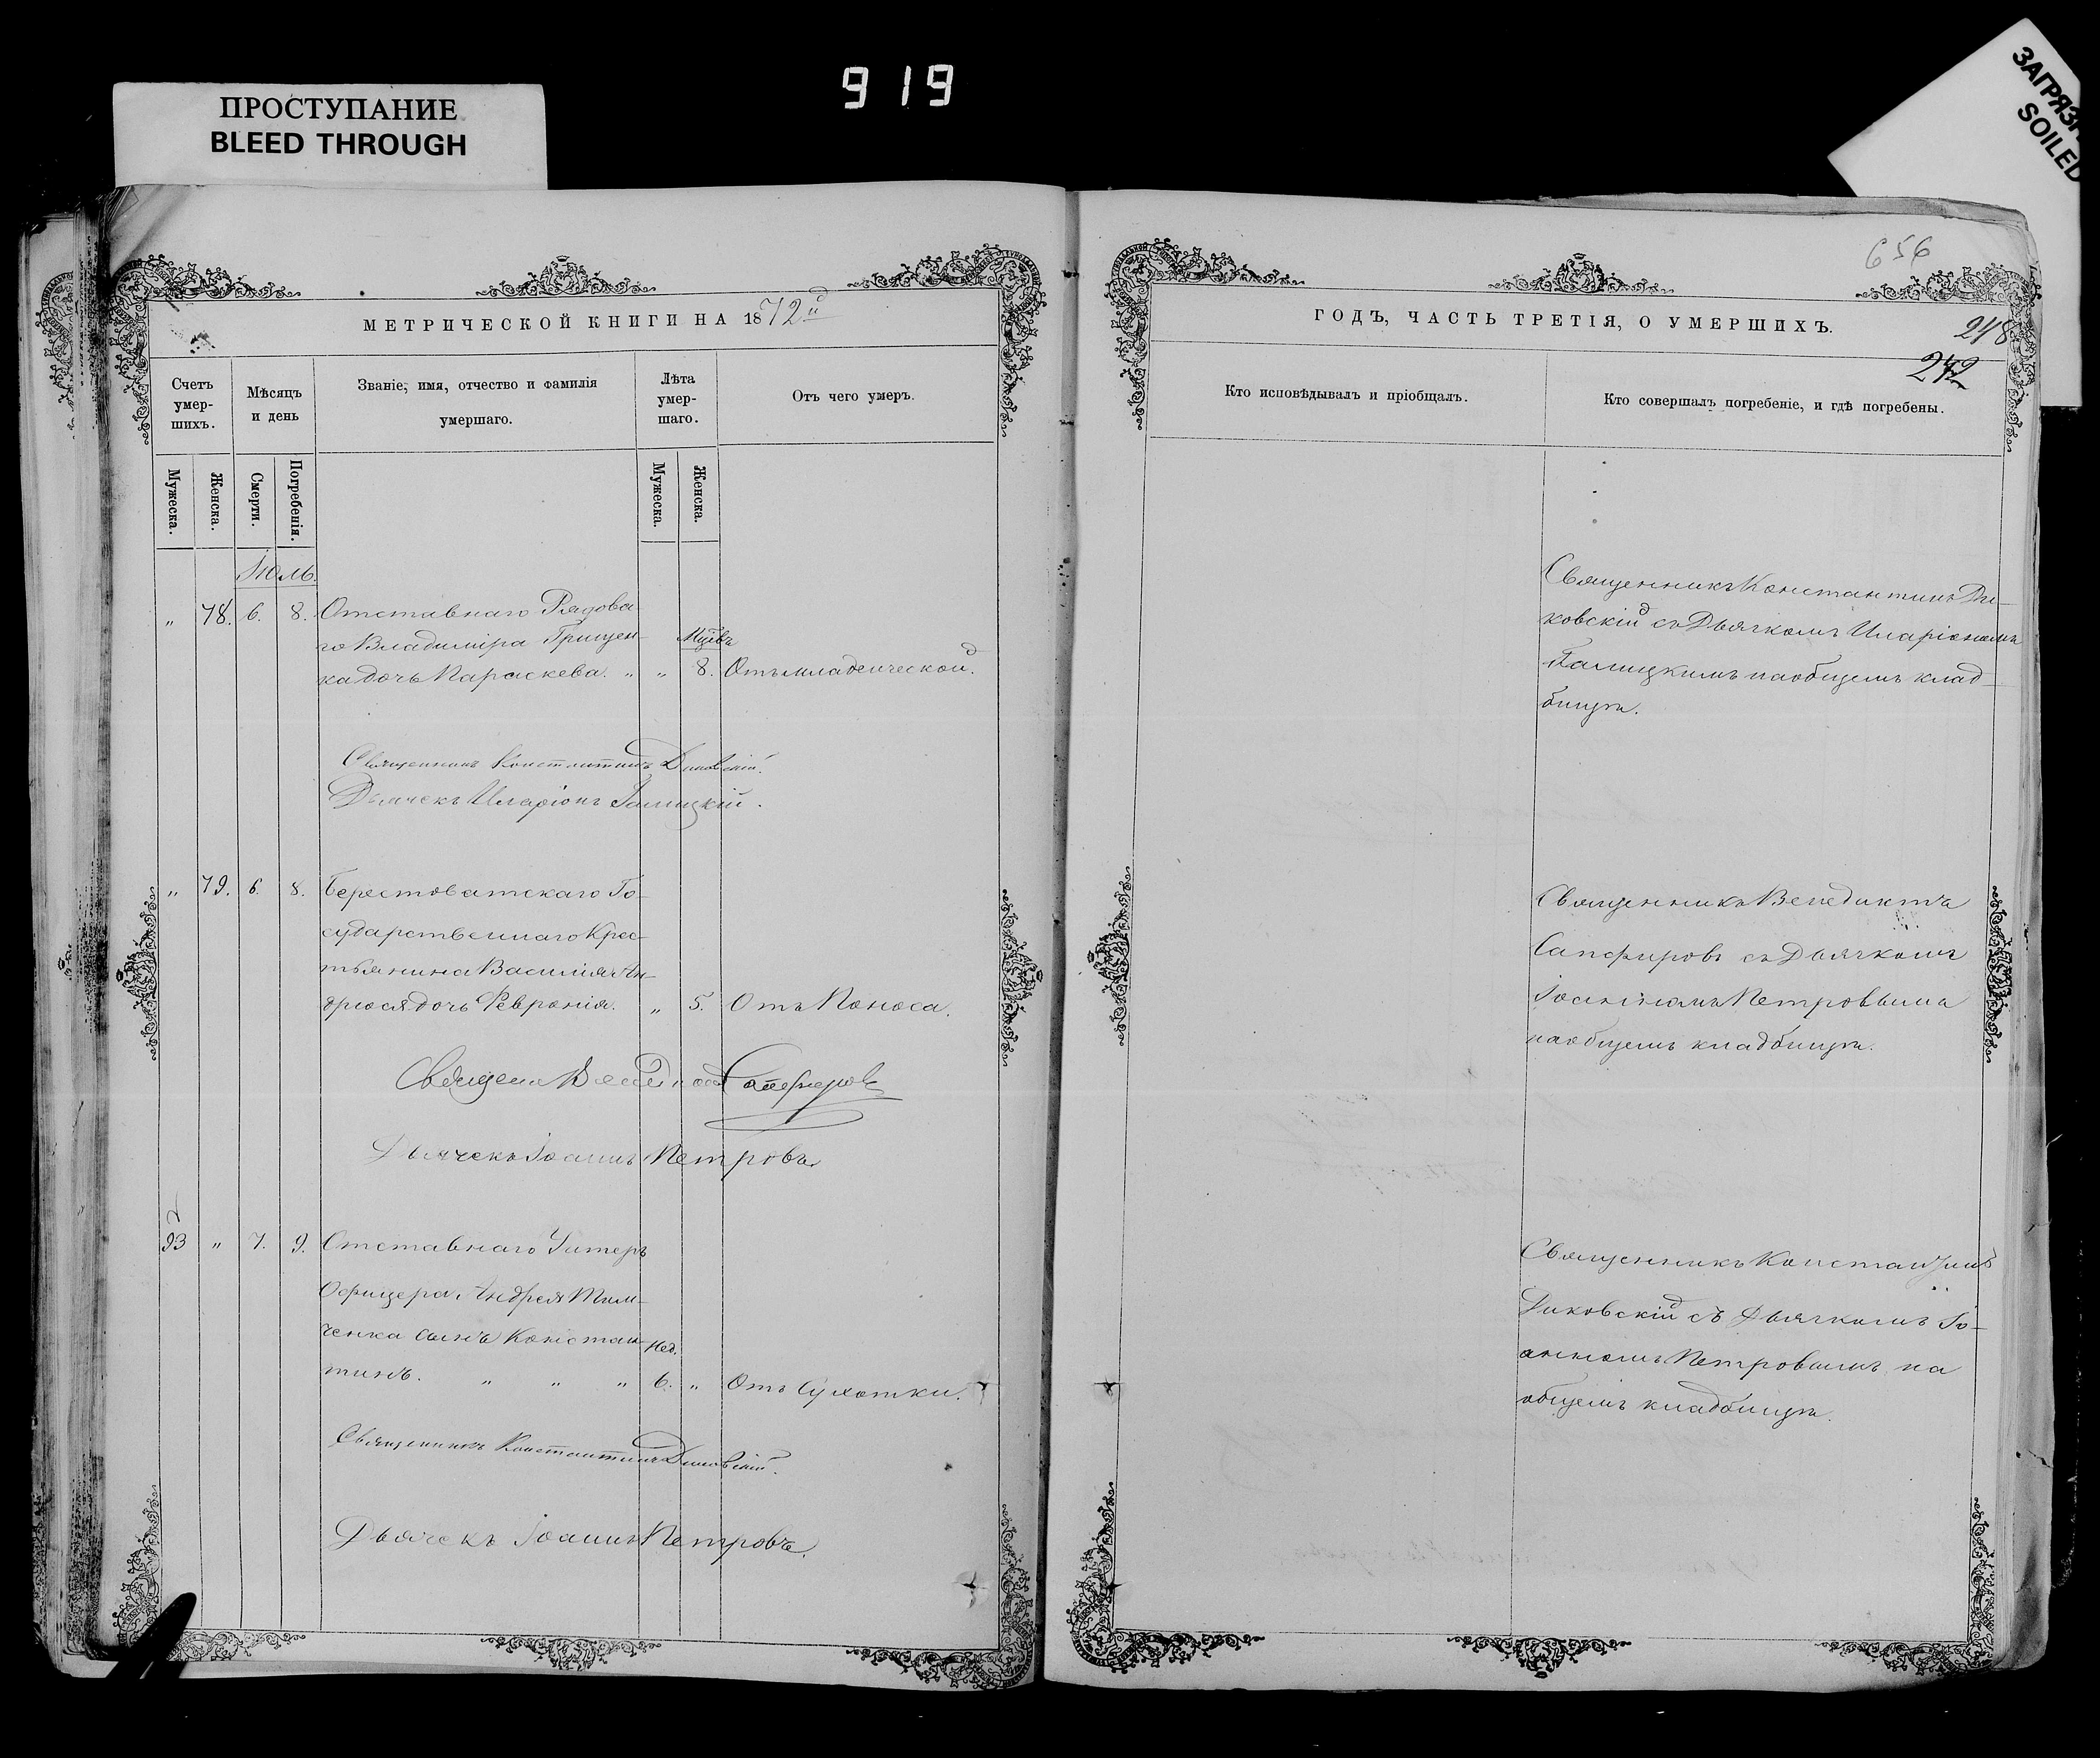 919
ПРОСТУПАНИЕ
BLEED THROUGH
SOILED
656
МЕТРИЧЕСКОЙ КНИГИ НА 1872й
ГОДЪ, ЧАСТЬ ТРЕТІЯ, О УМЕРШИХЪ.
248
Счетъ умер-шихъ.
Мѣсяцъ и день
Званіе, имя, отчество и фамилія умершаго.
Лѣта умер-шаго.
Отъ чего умеръ.
Кто исповѣдывалъ и пріобщалъ.
Кто совершалъ погребеніе, и гдѣ погребены.
Мужеска. Женска. Смерти. Погребенія. Мужеска. Женска.
Іюль.
„ 78. 6. 8. Отставнаго Рядова-
го Владиміра Грицен-
ка дочь Параскева. „ „ 8. Отъ младенческой.
Священникъ Константинъ Ди-
ковскій съ Дьячкомъ Иларіономъ
Галицкимъ на общемъ клад-
бищѣ.
Священникъ Константинъ Диковскій.
Дьячекъ Иларіонъ Галицкій.
„ 79. 6. 8. Берестоватскаго Го-
сударственнаго Крес-
тьянина Василія Ан-
дрюся дочь Февронія. „ 5. Отъ Поноса.
Священникъ Венедиктъ
Сапфировъ съ Дьячкомъ
Іоанномъ Петровымъ
на общемъ кладбищѣ.
Священ Венедикт Сапфиров
Дьячекъ Іоаннъ Петровъ
93 „ 7. 9. Отставнаго Унтеръ
Офицера Андрея Тим-
ченка сынъ Констан- нед.
тинъ. „ „ „ 6. „ Отъ Сухотки.
Священникъ Константинъ
Диковскій съ Дьячкомъ Іо-
анномъ Петровымъ на
общемъ кладбищѣ.
Священникъ Константинъ Диковскій.
Дьячекъ Іоаннъ Петровъ.